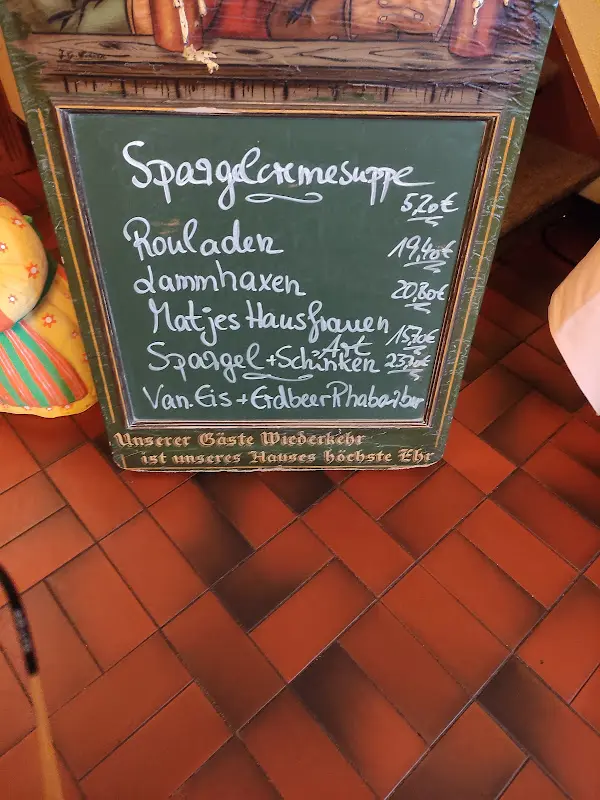 Spargelcremesuppe
5,20€
Rouladen 19,40€
Lammhaxen 20,80€
Matjes Hausfrauen
Art 15,70€
Spargel + Schinken 23,20€
Van. Eis + Erdbeer Rhabarber
Unserer Gäste Wiederkehr
ist unseres Hauses höchste Ehr